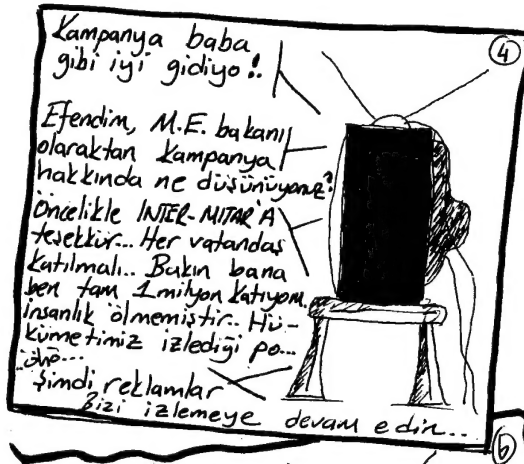 Kampanya baba
gibi iyi gidiyo!.
4
Efendim, M.E. bakanı
olaraktan Kampanya
hakkında ne düşünüyonuz?
Öncelikle INTER-MITAR'A
teşekkür... Her vatandaş
katılmalı.. Bakın bana
ben tam 1milyon katıyom.
insanlık ölmemiştir.. Hü-
kümetimiz izlediği po...
öhö...
Şimdi reklamlar
Bizi izlemeye devam edin...